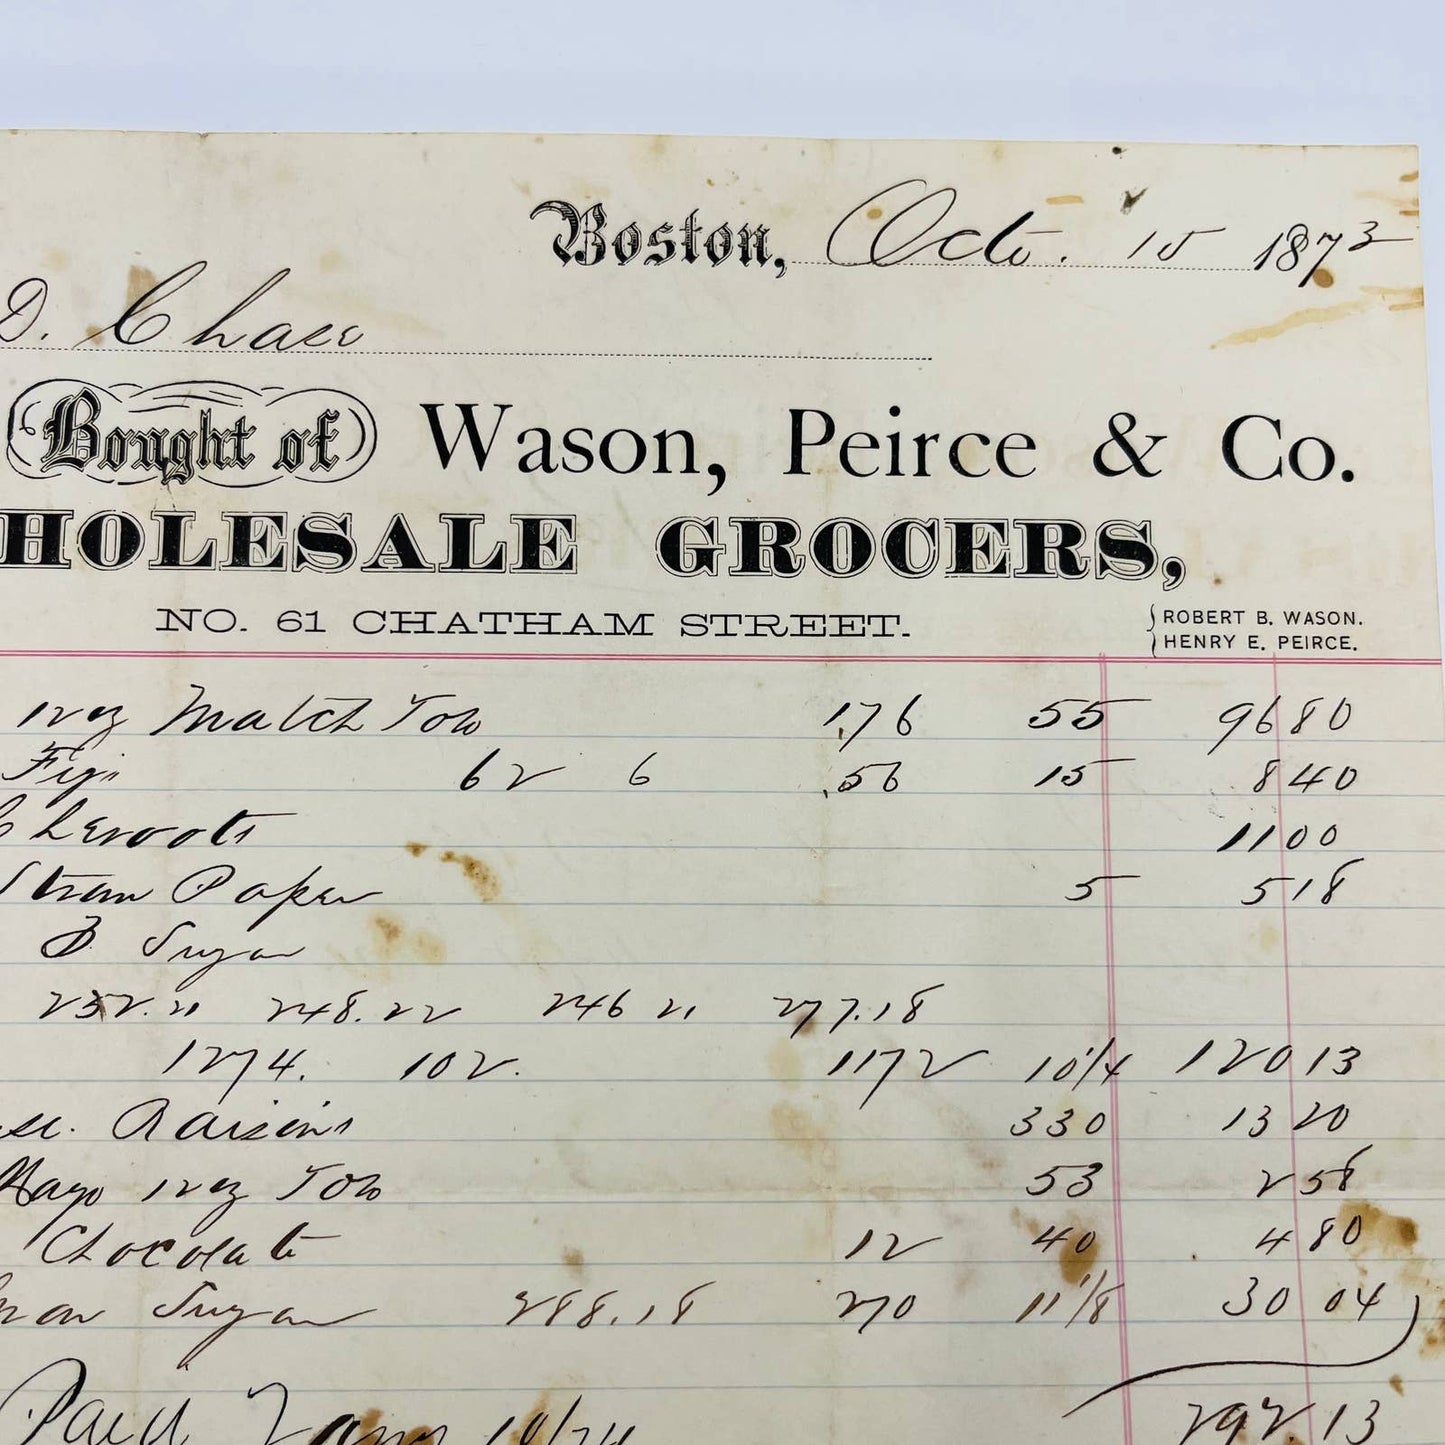 Boston, Oct. 15 1873
D. Chase
Bought of Wason, Peirce & Co.
HOLESALE GROCERS,
NO. 61 CHATHAM STREET.
ROBERT B. WASON.
HENRY E. PEIRCE.
Match Tob 176 55 96 80
Figs 62 6 56 15 8 40
Cheroots 11 00
Straw Paper 5 5 18
B Sugar
252.21 248.22 246 21 277.18
1274. 102. 1172 10 1/4 120 13
Raisins 330 13 20
Mayo Tob 53 2 58
Chocolate 12 40 4 80
Sugar 288.18 270 11 1/8 30 04
292.13
Paid